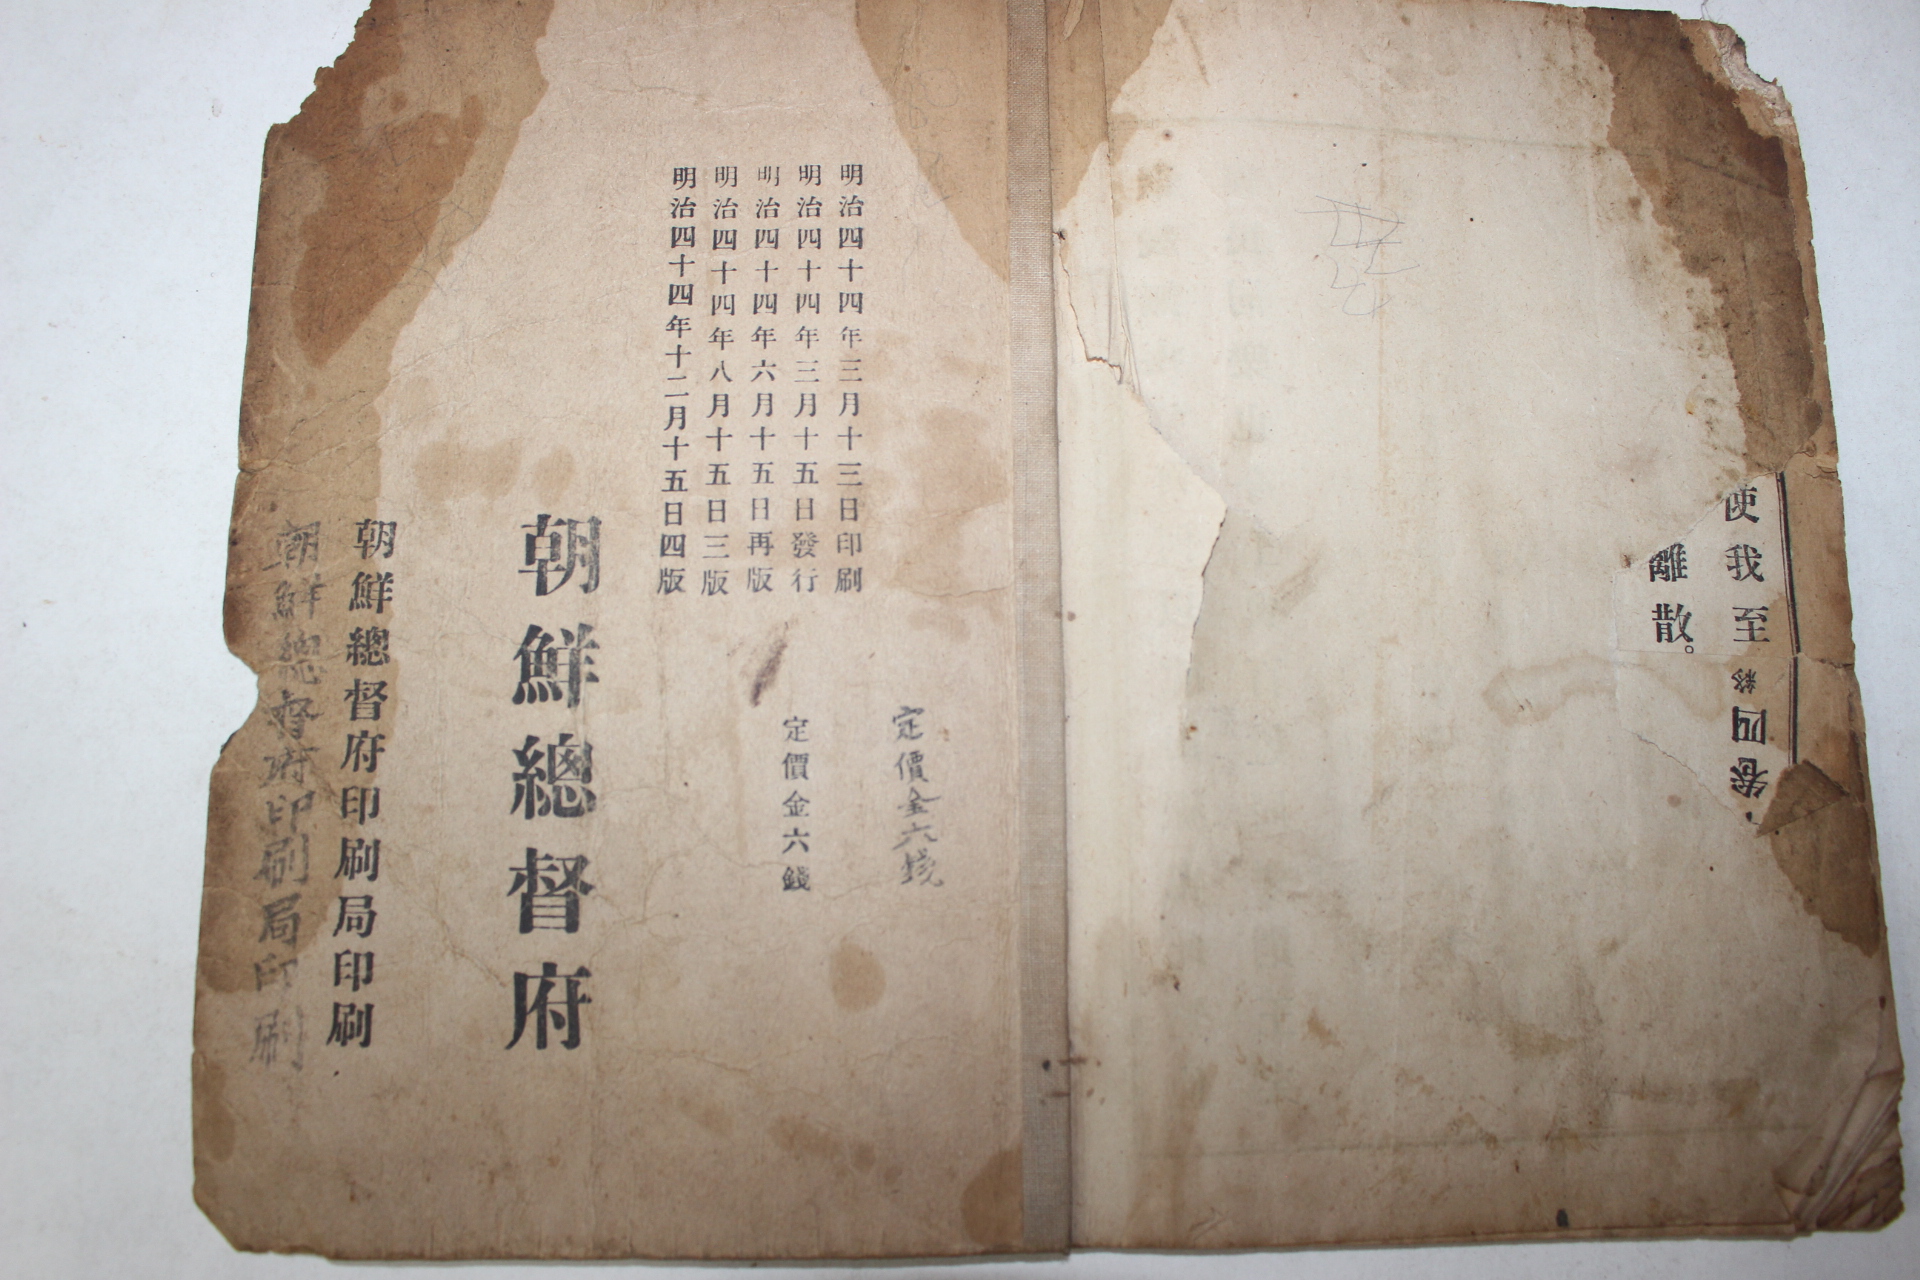 使我至
離散。
卷四終
定價金六錢
明治四十四年三月十三日印刷
明治四十四年三月十五日發行
明治四十四年六月十五日再版
明治四十四年八月十五日三版
明治四十四年十二月十五日四版
定價金六錢
朝鮮總督府
朝鮮總督府印刷局印刷
朝鮮總督府印刷局印刷